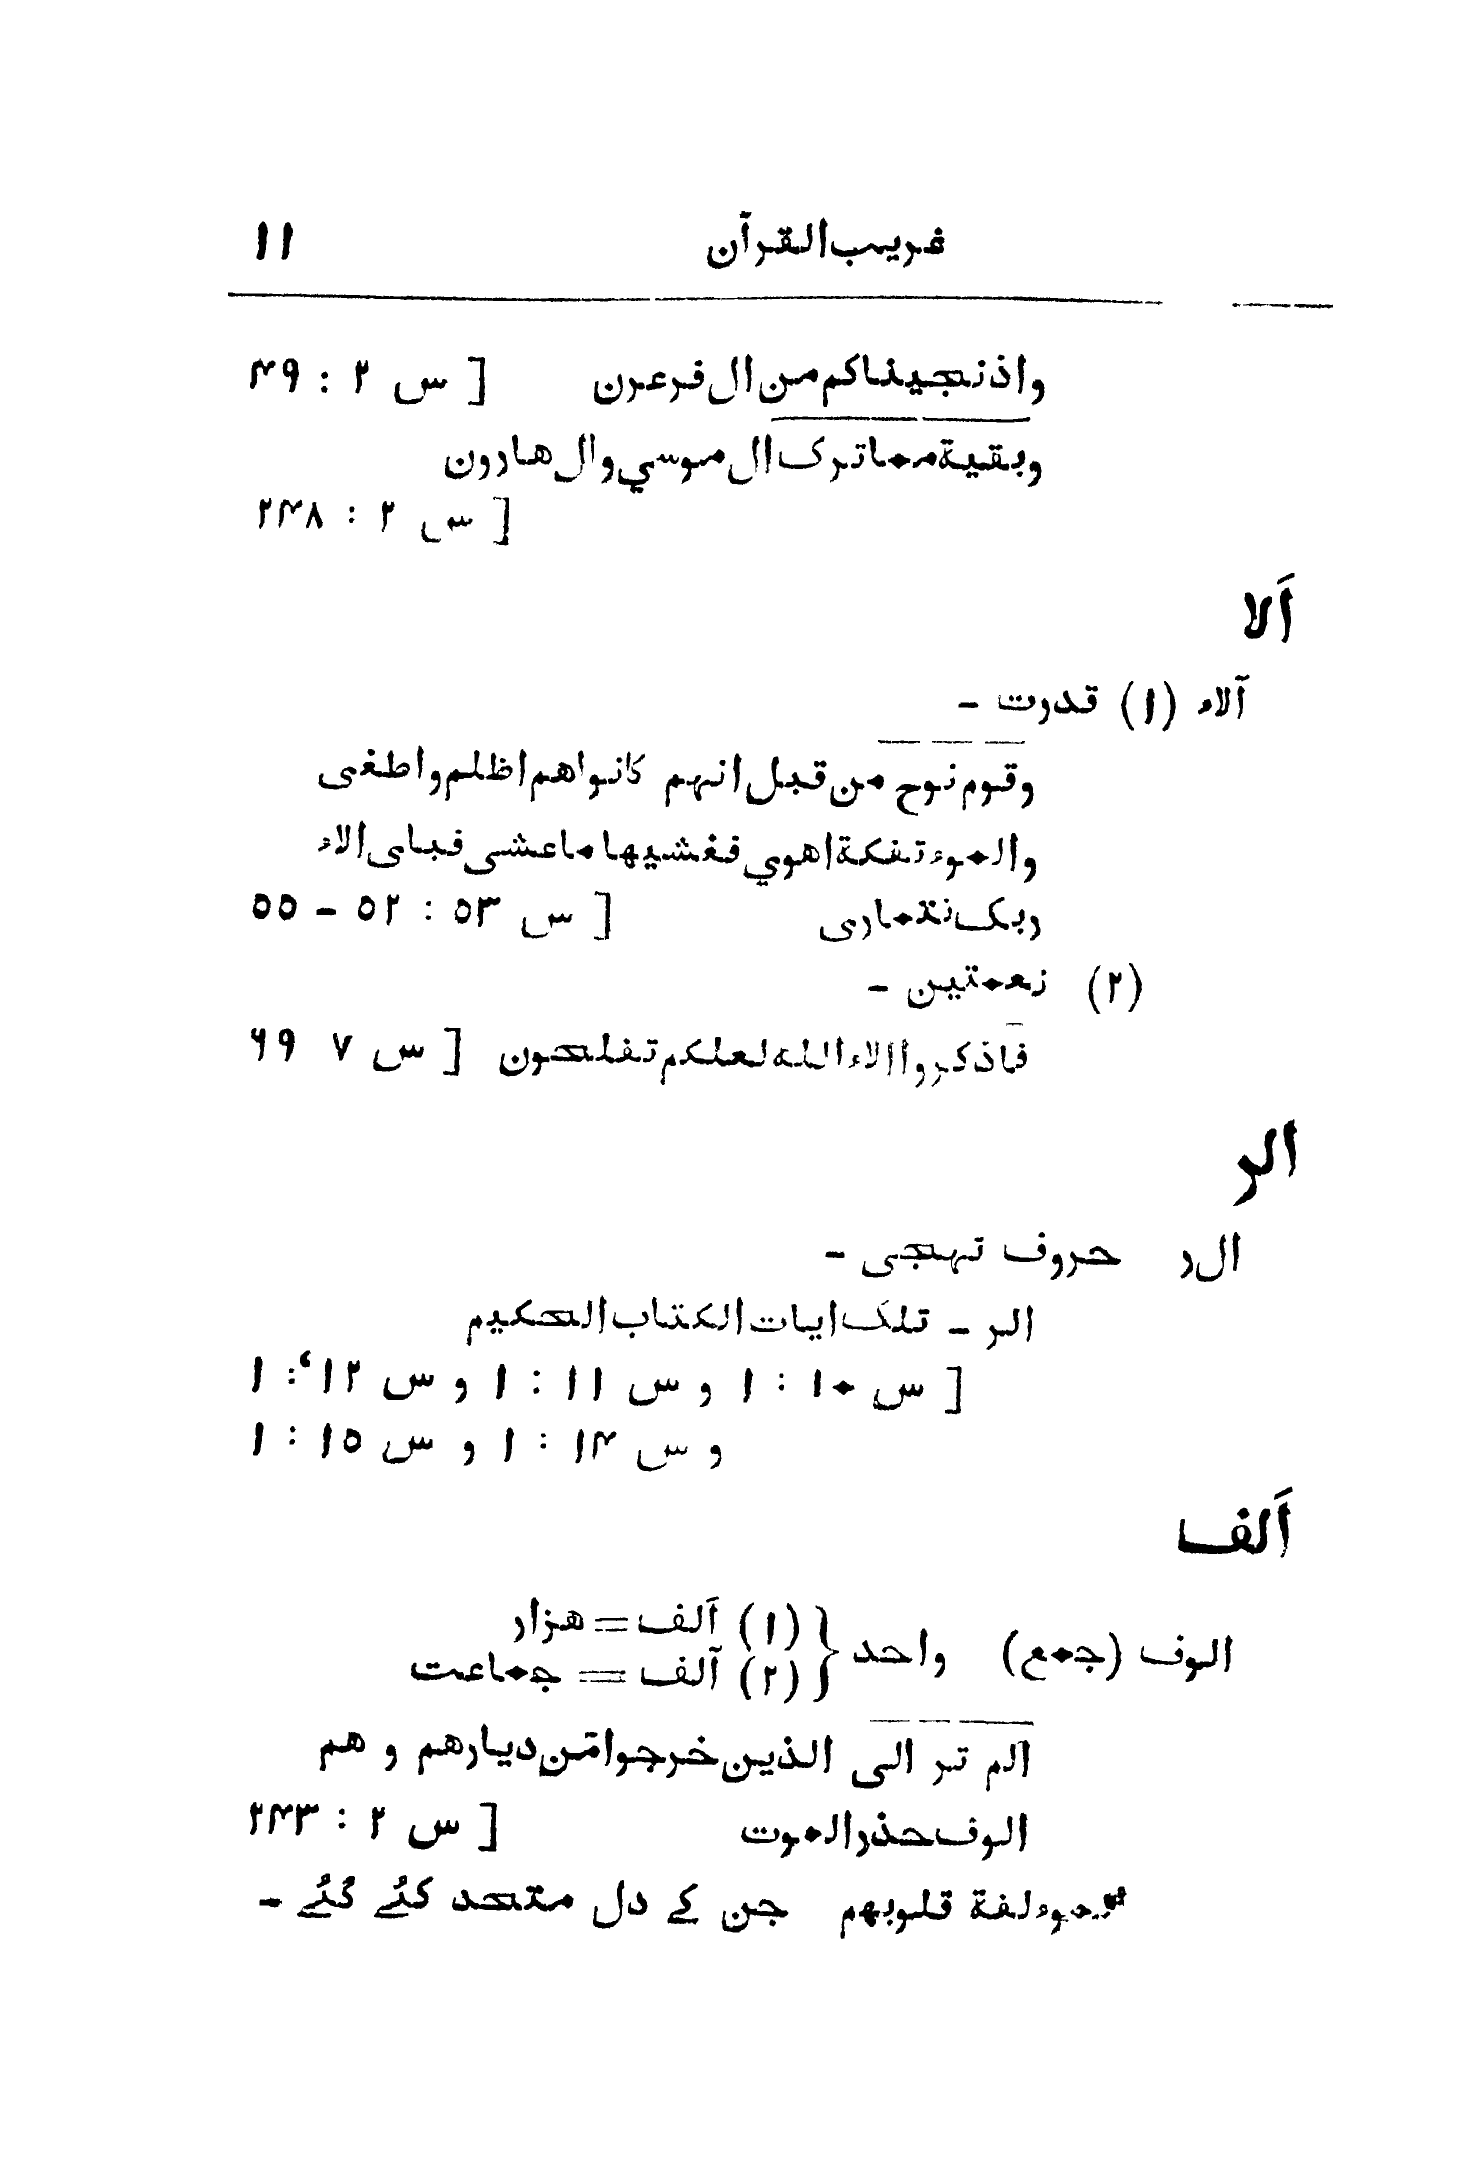 غریب القرآن ۱۱
واذ نجیناکم من ال فرعون [ س ۲ : ۴۹
وبقیة مما ترک ال موسي وال هارون
[ س ۲ : ۲۴۸
اَلا
آلاء (۱) قدرت -
وقوم نوح من قبل انهم کانوا هم اظلم واطغی
والموءتفکة اهوي فغشیها ماغشی فبای الاء
ربک تتماری [ س ۵۳ : ۵۲ - ۵۵
(۲) نعمتین -
فاذکروا الاء الله لعلکم تفلحون [ س ۷ ۶۹
الر
ال ر حروف تهجی -
الر - تلک ایات الکتاب الحکیم
[ س ۱۰ : ۱ و س ۱۱ : ۱ و س ۱۲ : ۱
و س ۱۴ : ۱ و س ۱۵ : ۱
اَلف
الوف (جمع) واحد { (۱) اَلف = هزار
(۲) اَلف = جماعت
الم تر الی الذین خرجوا من دیارهم و هم
الوف حذر الموت [ س ۲ : ۲۴۳
موءلفة قلوبهم جن کے دل متحد کئے گئے -